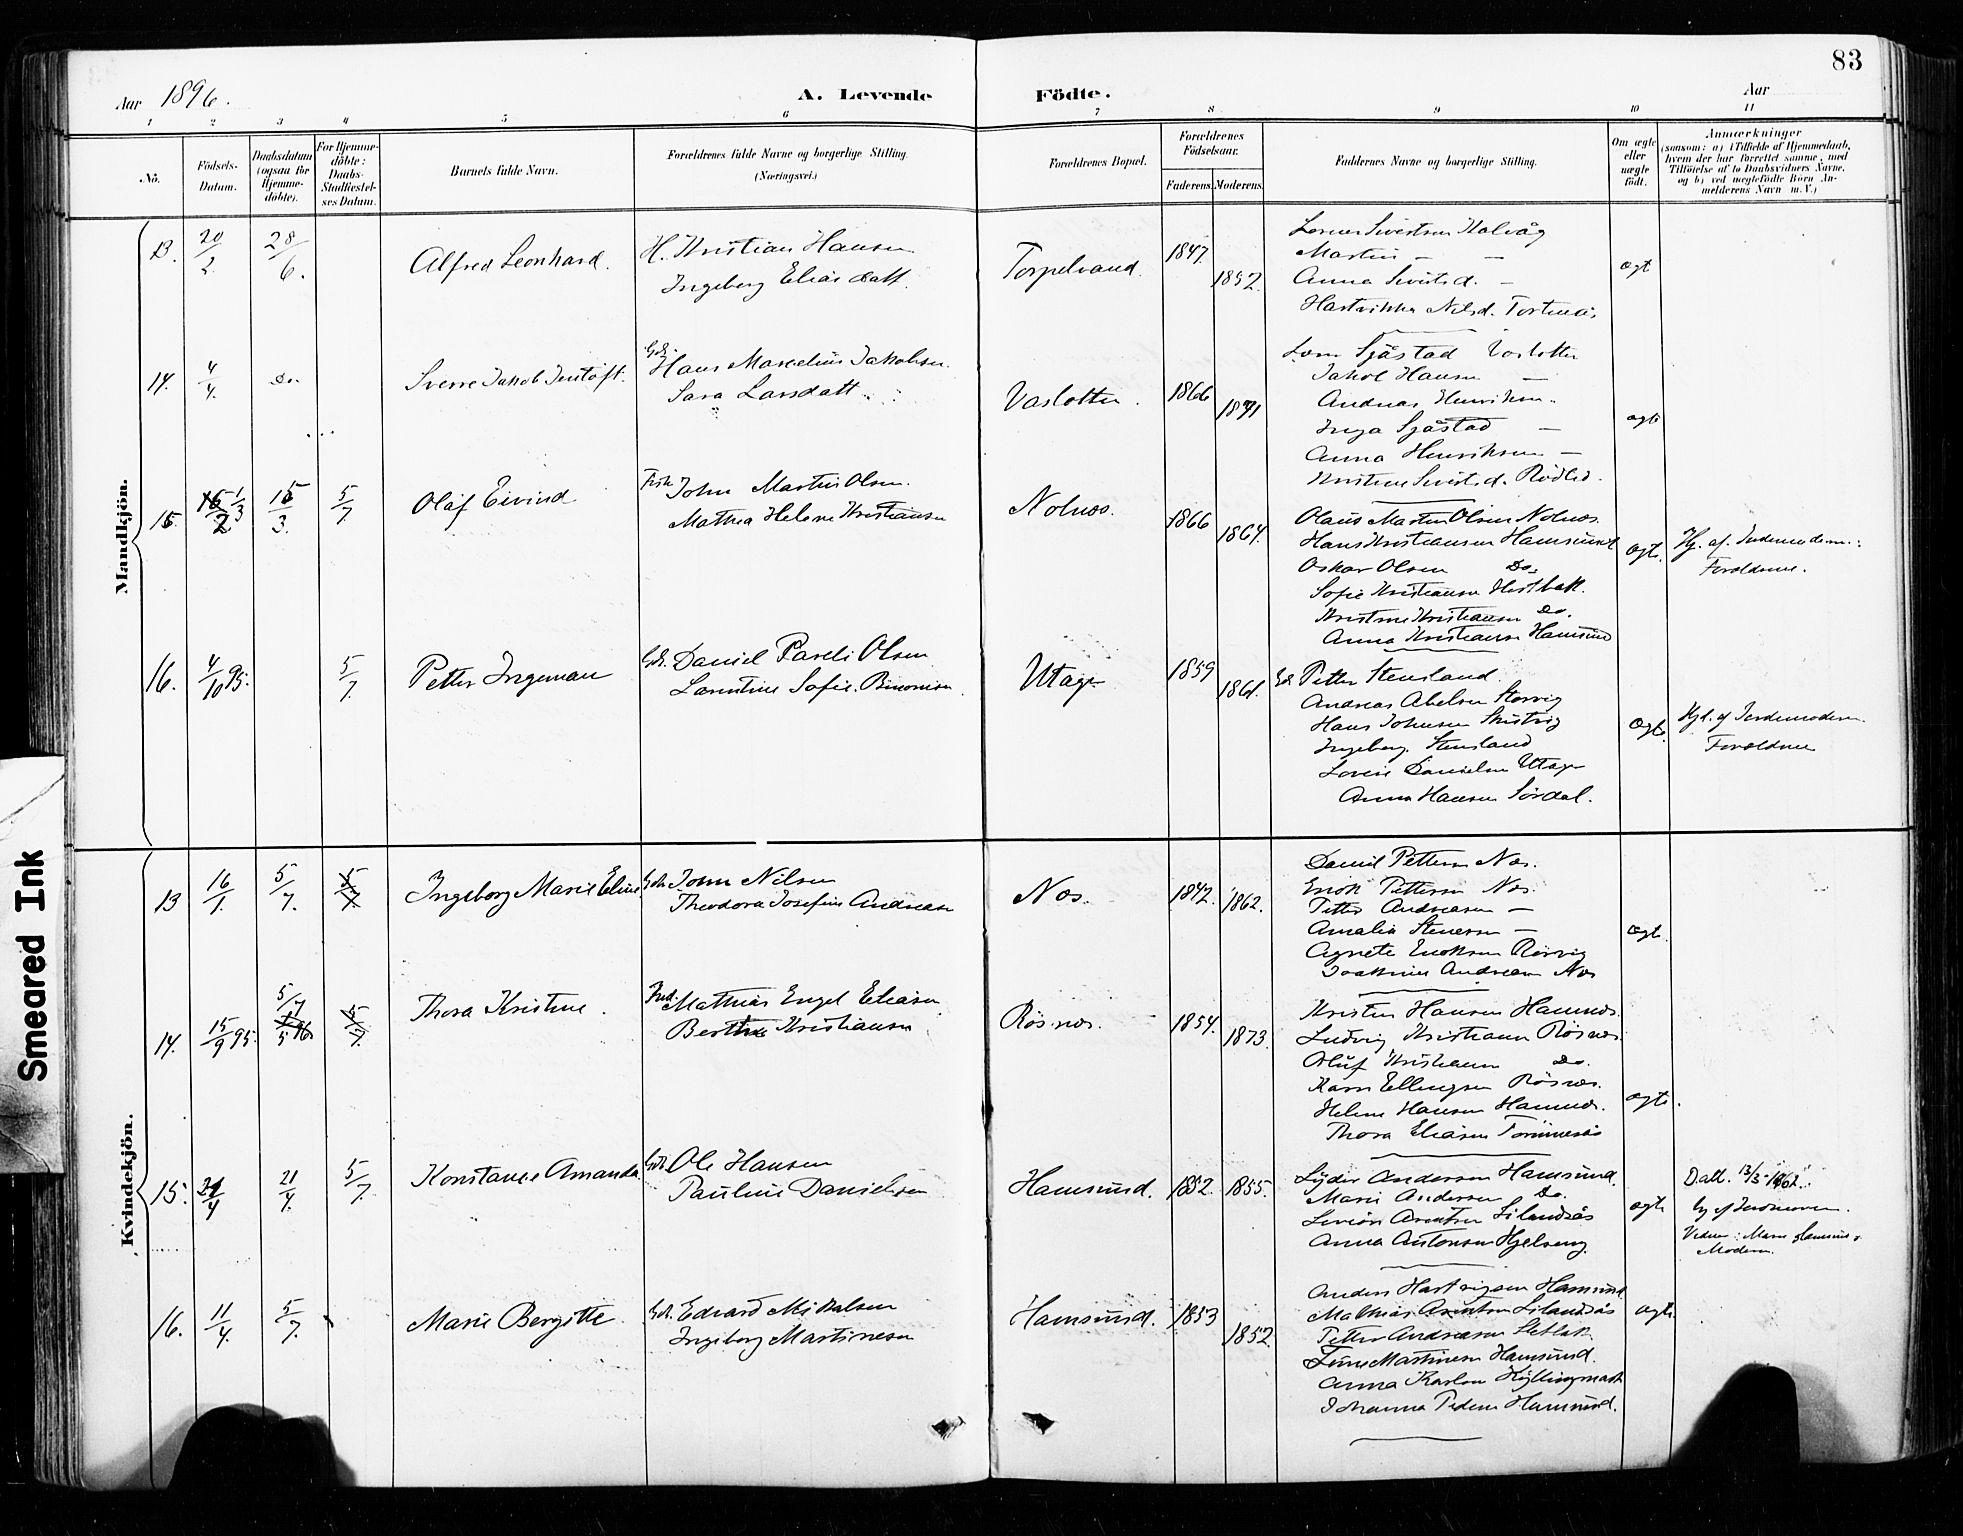 83
Aar 1896.
A. Levende Födte.
Aar
1 2 3 4 5 6 7 8 9 10 11
No.
Födsels-Datum.
Daabsdatum (ogsaa for Hjemme-döbte).
For Hjemme-döbte: Daabs-Stadfæstel-ses Datum.
Barnets fulde Navn.
Forældrenes fulde Navne og borgerlige Stilling. (Næringsvei.)
Forældrenes Bopæl.
Forældrenes Födselsaar.
Faderens. Moderens.
Faddernes Navne og borgerlige Stilling.
Om ægte eller uægte födt.
Anmærkninger (saasom: a) i Tilfælde af Hjemmedaab, hvem der har forrettet samme, med Tilföielse af to Daabsvidners Navne, og b) ved uægtefödte Börn An-melderens Navn m. V.)
Mandkjön.
13. 20/2 28/6. Alfred Leonhard.
H. Kristian Hansen
Ingeberg Eliasdatt.
Torpelvand. 1847. 1852.
Martin — —
Anna Sivertsd. —
Hartvikka Nilsd. Tortenæs
ægt
14. 4/4. Do. Sverre Jakob Jentoft.
Gdr. Hans Marselius Jakobsen.
Sara Larsdatt.
Vaslotten. 1866 1871
Sjåstad Vaslotten
Jakob Hansen —
Andreas Henriksen
Inga Sjåstad —
Anna Henriksen —
Kristine Sivertsd. Rödlid.
ægte
15. 1/3 15/3. 5/7 Olaf Eivind
Fisk. John Martin Olsen.
Mathea Helene Kristiansen
Nolnæs. 1866 1864.
Olaus Martin Olsen Nolnæs.
Hans Kristiansen Hamsund
Oskar Olsen Do.
Sofie Kristiansen
Kristine Kristiansen Do.
Anna Kristiansen Hamsund
ægte.
Hj. af Jordemoderen:
Forældrene.
16. 4/10 95. 5/7 Petter Ingeman
Gdr. Daniel Pareli Olsen
Larentine Sofie
Utage 1859 1861.
Gd. Petter Stensland.
Andreas Abelsen Storvig
Hans Johnsen
Ingeberg Stensland
Lovise Danielsen Utage
Anna Hansen Sördal.
Ægte.
Hjd. af Jordemoderen
Forældrene
Kvindekjön.
13 16/1. 5/7. 5/7. Ingeborg Marie Eline
Gdr. John Nilsen
Theodora Josefine Andreasen
Næs. 1842. 1862.
Daniel Pettersen Næs.
Erick Pettersen Næs.
Petter Andreasen —
Amalia Stenersen —
Agnete Ericksen Rörvig
Joakime Andreasen Næs
ægte.
14. 15/9 95. 5/7 5/7. Thora Kristine.
Ind. Mathias Engel Eliasen
Berthe Kristiansen
Rösnæs. 1854. 1873.
Kristen Hansen Hamnæs.
Ludvig Kristiansen Rösnæs.
Oluf Kristiansen Do.
Karen Ellingsen Rösnæs.
Helene Hansen Hamnæs.
Thora Eliasen
ægte.
15. 21/4. 5/7. Konstance Amanda
Gdr. Ole Hansen
Pauline Danielsen
Hamsund. 1852. 1855.
Lyder Andersen Hamsund.
Marie Andersen Do.
Arntsen Lilandsås
Anna Antonsen Hjelseng
ægte
Jordmoren.
Modern.
16. 11/4. 5/7. Marie Bergitte.
Gdr. Edvard Mikalsen
Ingeborg Martinesen
Hamsund. 1853 1852.
Anders Hartvigsen Hamsund
Mathias Arntsen Lilandsås
Petter Andreasen
Line Martinesen Hamsund.
Anna Karlsen Kyllingmark
Johanna Peders. Hamsund.
ægte.
Smeared Ink